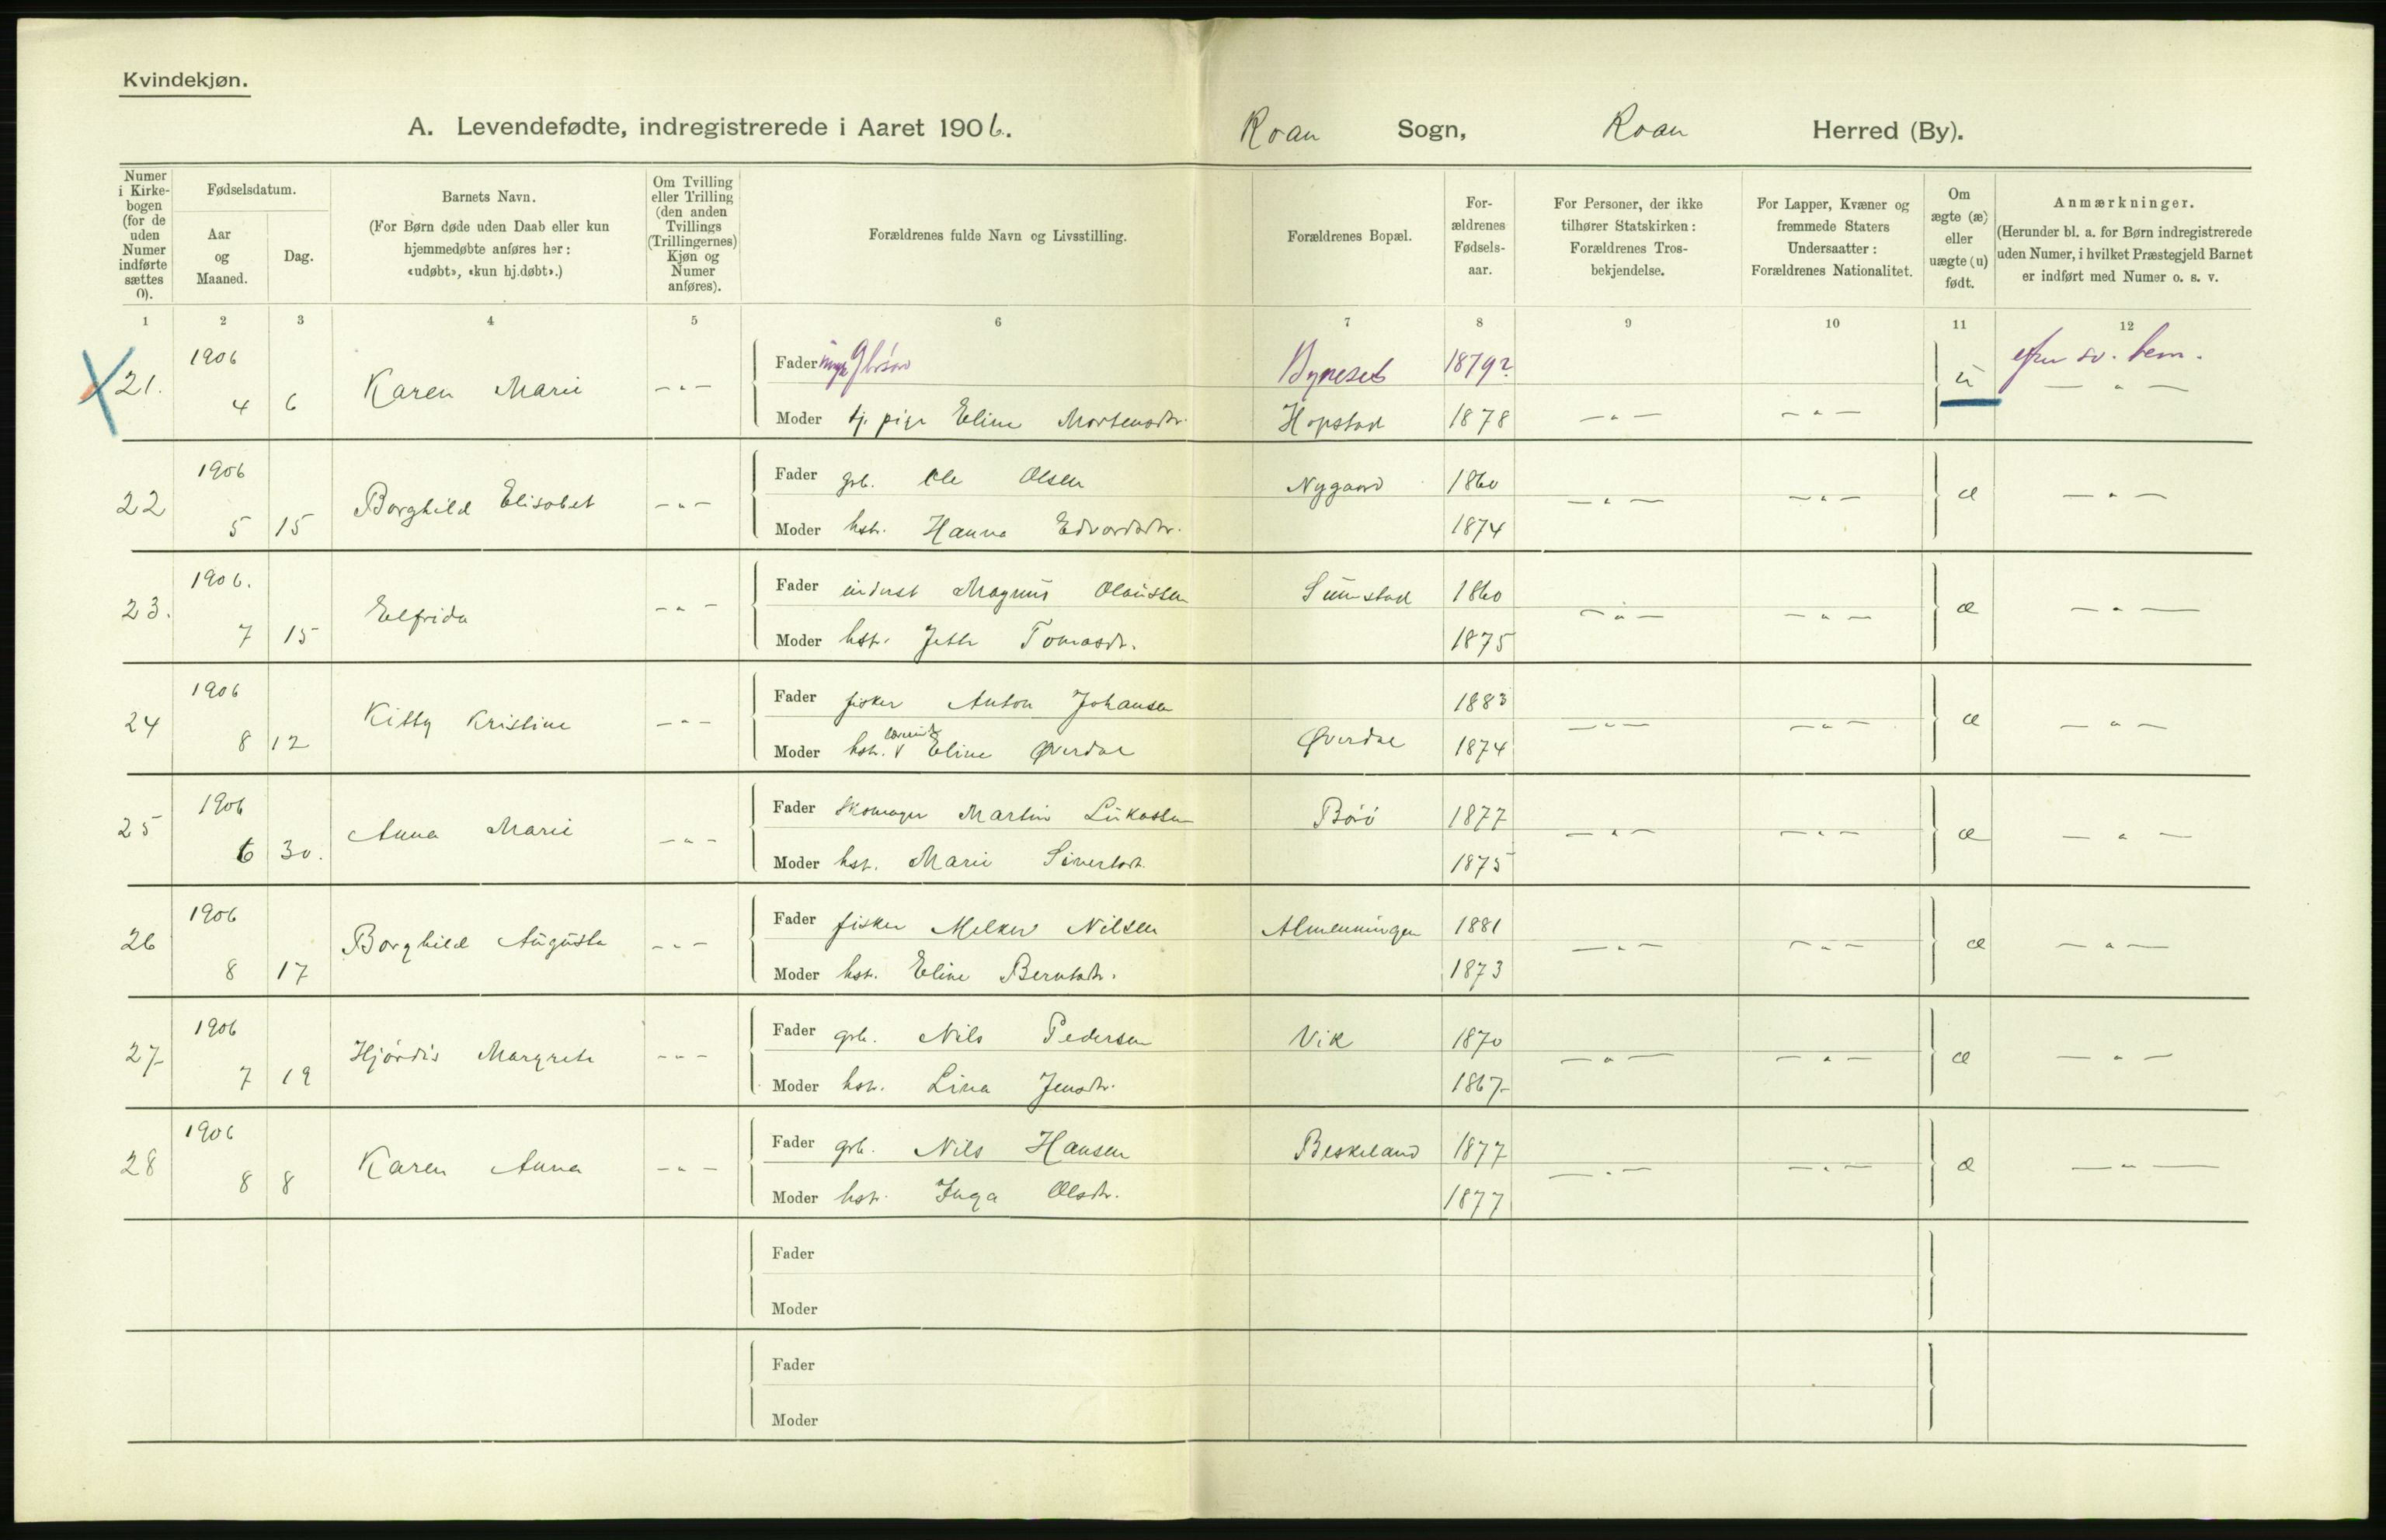 Kvindekjøn.
A. Levendefødte, indregistrerede i Aaret 1906.
Roan Sogn, Roan Herred (By).
Numer i Kirkebogen (for de uden Numer indførte sættes 0).
Fødselsdatum.
Aar og Maaned.
Dag.
Barnets Navn.
(For Børn døde uden Daab eller kun hjemmedøbte anføres her: «udøbt», «kun hj.døbt».)
Om Tvilling eller Trilling (den anden Tvillings (Trillingernes) Kjøn og Numer anføres).
Forældrenes fulde Navn og Livsstilling.
Forældrenes Bopæl.
Forældrenes Fødselsaar.
For Personer, der ikke tilhører Statskirken: Forældrenes Trosbekjendelse.
For Lapper, Kvæner og fremmede Staters Undersaatter: Forældrenes Nationalitet.
Om ægte (æ) eller uægte (u) født.
Anmærkninger.
(Herunder bl. a. for Børn indregistrerede uden Numer, i hvilket Præstegjeld Barnet er indført med Numer o. s. v.
1 2 3 4 5 6 7 8 9 10 11 12
21. 1906 4 6 Karen Marie -"-
Fader Byneset 1879?
Moder tj. pige Eline Mortensdtr. Hopstad 1878 -"- -"- u -"-
22 1906 5 15 Borghild Elisabet -"-
Fader grb. Ole Olsen Nygaard 1860 -"- -"- æ -"-
Moder hstr. Hanna Edvardsdtr. 1874
23. 1906. 7 15 Elfrida -"-
Fader inderst Magnus Olaussen Sumstad 1860 -"- -"- æ -"-
Moder hstr. Jette Tomasdr. 1875
24 1906 8 12 Kitty Kristine -"-
Fader fisker Anton Johansen 1883 -"- -"- æ -"-
Moder hstr. Eline Øverdal Øverdal 1874
25 1906 6 30. Anna Marie -"-
Fader Skomager Martin Lukassen Børø 1877 -"- -"- æ -"-
Moder hstr. Marie Sivertsdt. 1875
26 1906 8 17 Borghild Augusta -"-
Fader fisker Melker Nilsen Almenningen 1881 -"- -"- æ -"-
Moder hstr. Eline Berntsdtr. 1873
27 1906 7 19 Hjördis Margrete -"-
Fader grb. Nils Pedersen Vik 1870 -"- -"- æ -"-
Moder hstr. Lina Jensdtr. 1867
28 1906 8 8 Karen Anna -"-
Fader grb. Nils Hansen Beskeland 1877 -"- -"- æ -"-
Moder hstr. Inga Olsdtr. 1877
Fader
Moder
Fader
Moder